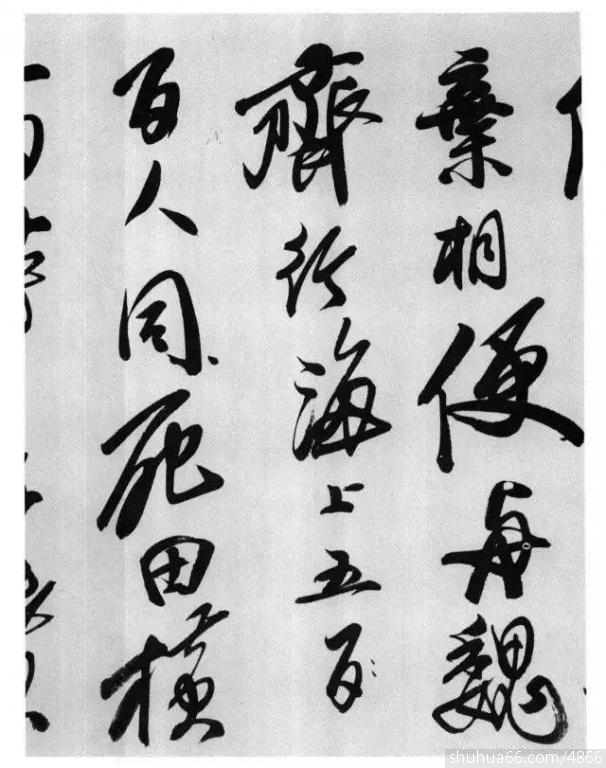 棄相便與魏
齊行海上五百
百人同死田橫
shuhua66.com/4866